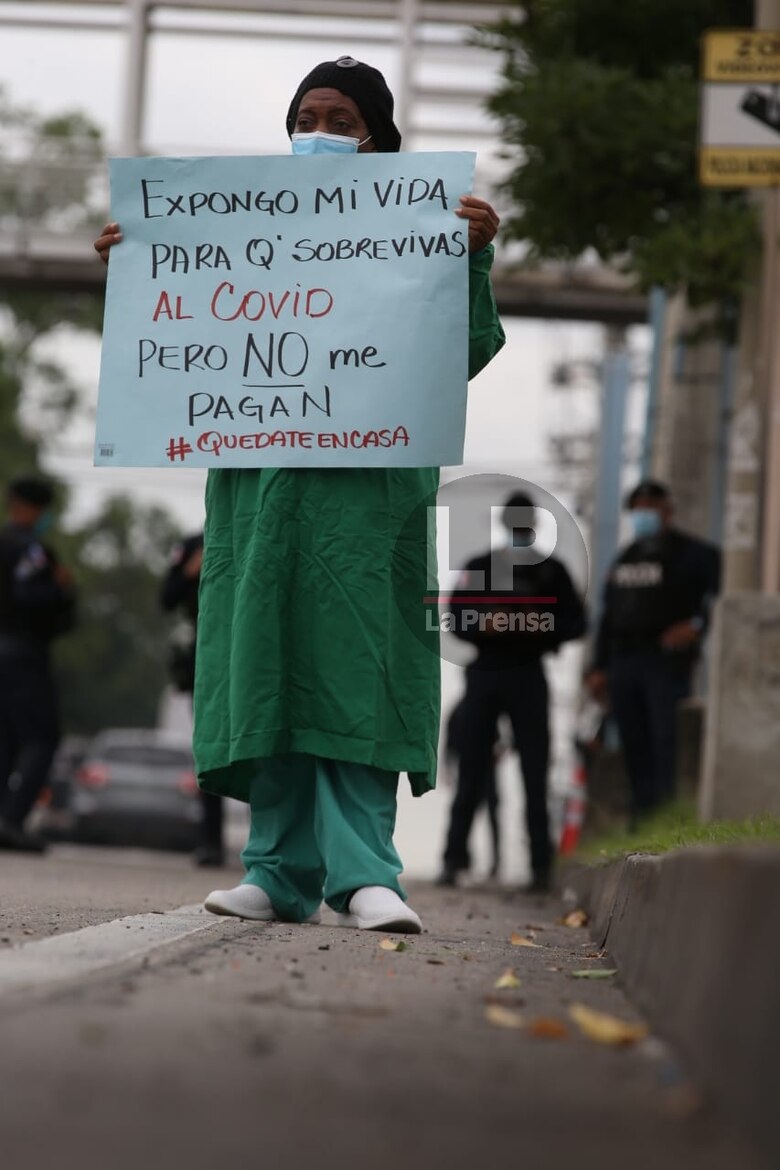 EXPONGO Mi ViDA
PARA Q' SOBREVIVAS
AL COViD
PERO NO me
PAGAN
#QUEDATEENCASA
LP
La Prensa
ZO